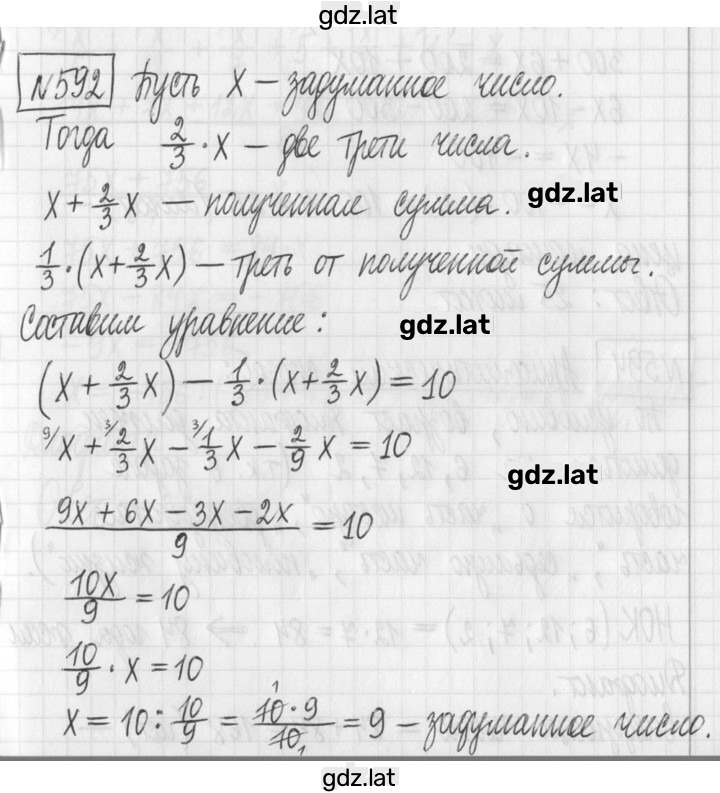 gdz.lat
№592 Пусть x – задуманное число.
Тогда 2/3 · x – две трети числа.
x + 2/3 x – полученная сумма.
gdz.lat
1/3 · (x + 2/3 x) – треть от полученной суммы.
Составим уравнение:
gdz.lat
(x + 2/3 x) – 1/3 · (x + 2/3 x) = 10
9/ x + 3/ 2/3 x – 3/ 1/3 x – 2/9 x = 10
gdz.lat
(9x + 6x – 3x – 2x)/9 = 10
10x/9 = 10
10/9 · x = 10
x = 10 : 10/9 = (10 · 9)/10 = 9 – задуманное число.
gdz.lat